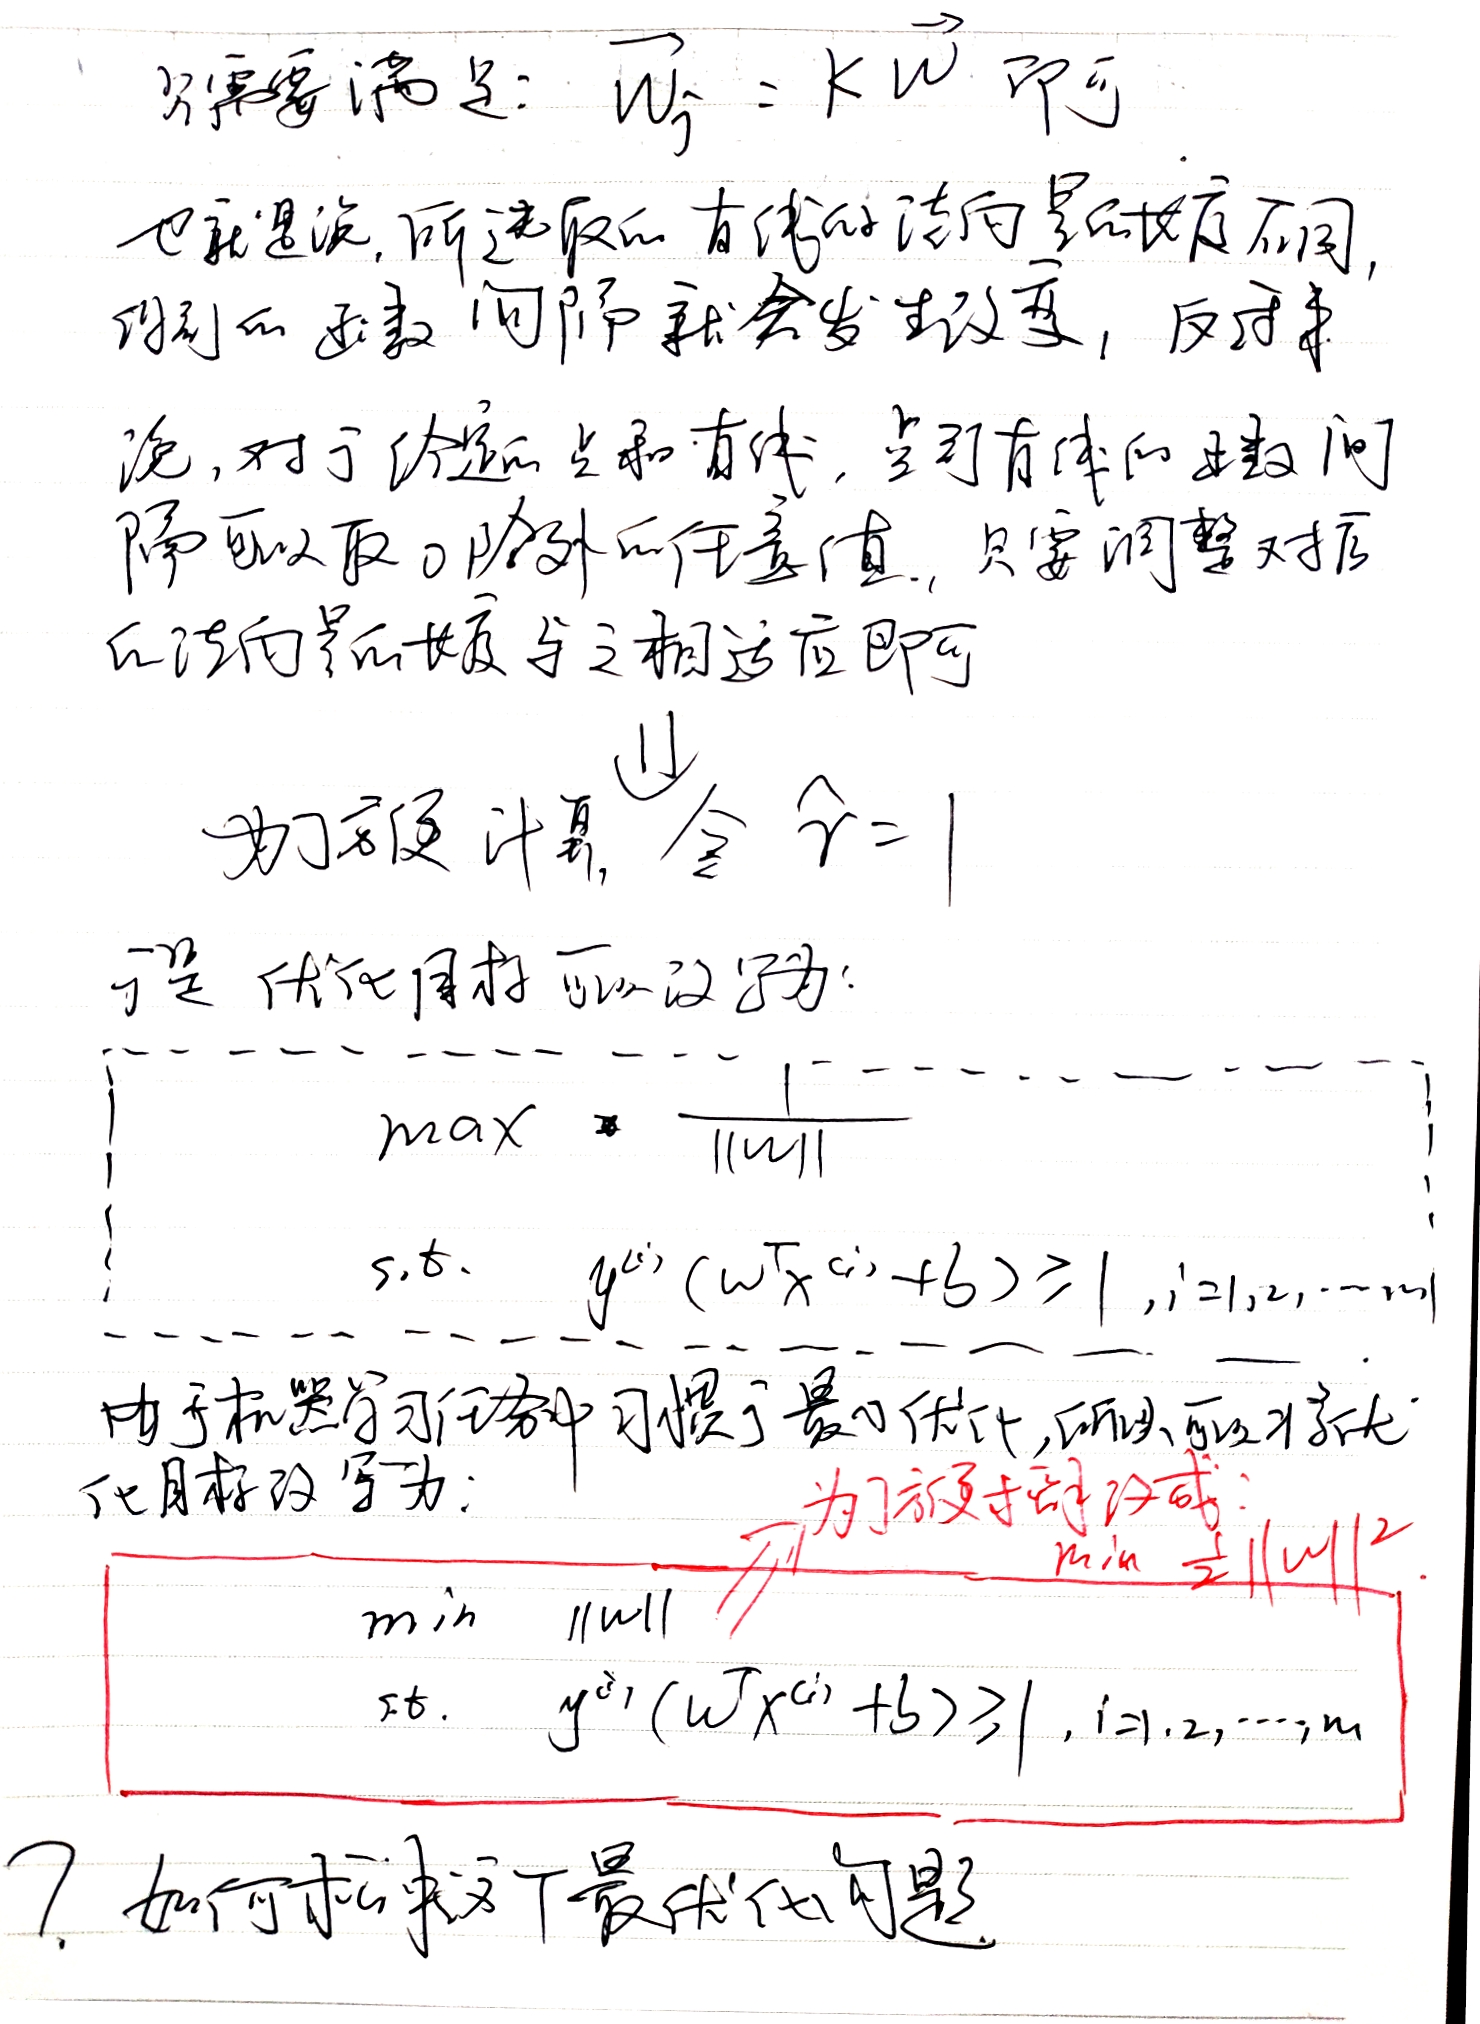 只需要满足: $\vec{w_j} = k\vec{w}$ 即可
也就是说,所选取的直线的法向量的长度不同,
得到的函数间隔就会发生改变,反过来
说,对于给定的点和直线,点到直线的函数间
隔可以取0除外的任意值,只要调整对应
的法向量的长度与之相适应即可
⇓
为了方便计算,令 $\hat{r} = 1$
于是优化目标可以改写为:
max $\frac{1}{||w||}$
s.t. $y^{(i)}(w^Tx^{(i)}+b) \geq 1, i=1,2,\cdots m$
由于机器学习任务中习惯于最小优化,所以可以将优
化目标改写为:
为了方便求解改成:
min $\frac{1}{2}||w||^2$
min $||w||$
s.t. $y^{(i)}(w^Tx^{(i)}+b) \geq 1, i=1,2,\cdots,m$
? 如何求解这个最优化问题